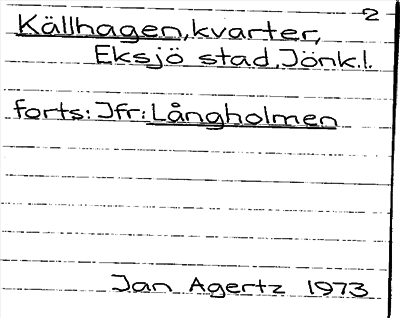 2
Källhagen, kvarter,
Eksjö stad, Jönk.l.
forts: Jfr: Långholmen
Jan Agertz 1973